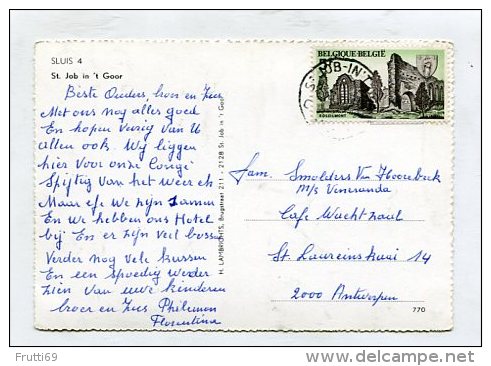 SLUIS 4
St. Job in 't Goor
BELGIQUE-BELGIË
JOB-IN-'T
SOLEILMONT
Beste Ouders, broer en Zus
Met ons nog alles goed
En hopen vurig van U
allen ook. Wij liggen
hier voor onze Congé
Spijtig van het weer eh
Maar efe we zijn samen
En we hebben ons Hotel
bij En er zijn veel bossen
Verder nog vele kussen
En een spoedig weder
zien van uwe kinderen
broer en Zus Philemon
Florentina
H. LAMBRICHTS, Brugstraat 211 - 2128 St. Job in 't Goor
Fam. Smolders Van Hoorebeek
M/S Veneranda
Cafe Wachtzaal
St. Laureinskaai 14
2000 Antwerpen
770
Frutti69
http://www.delcampe.net